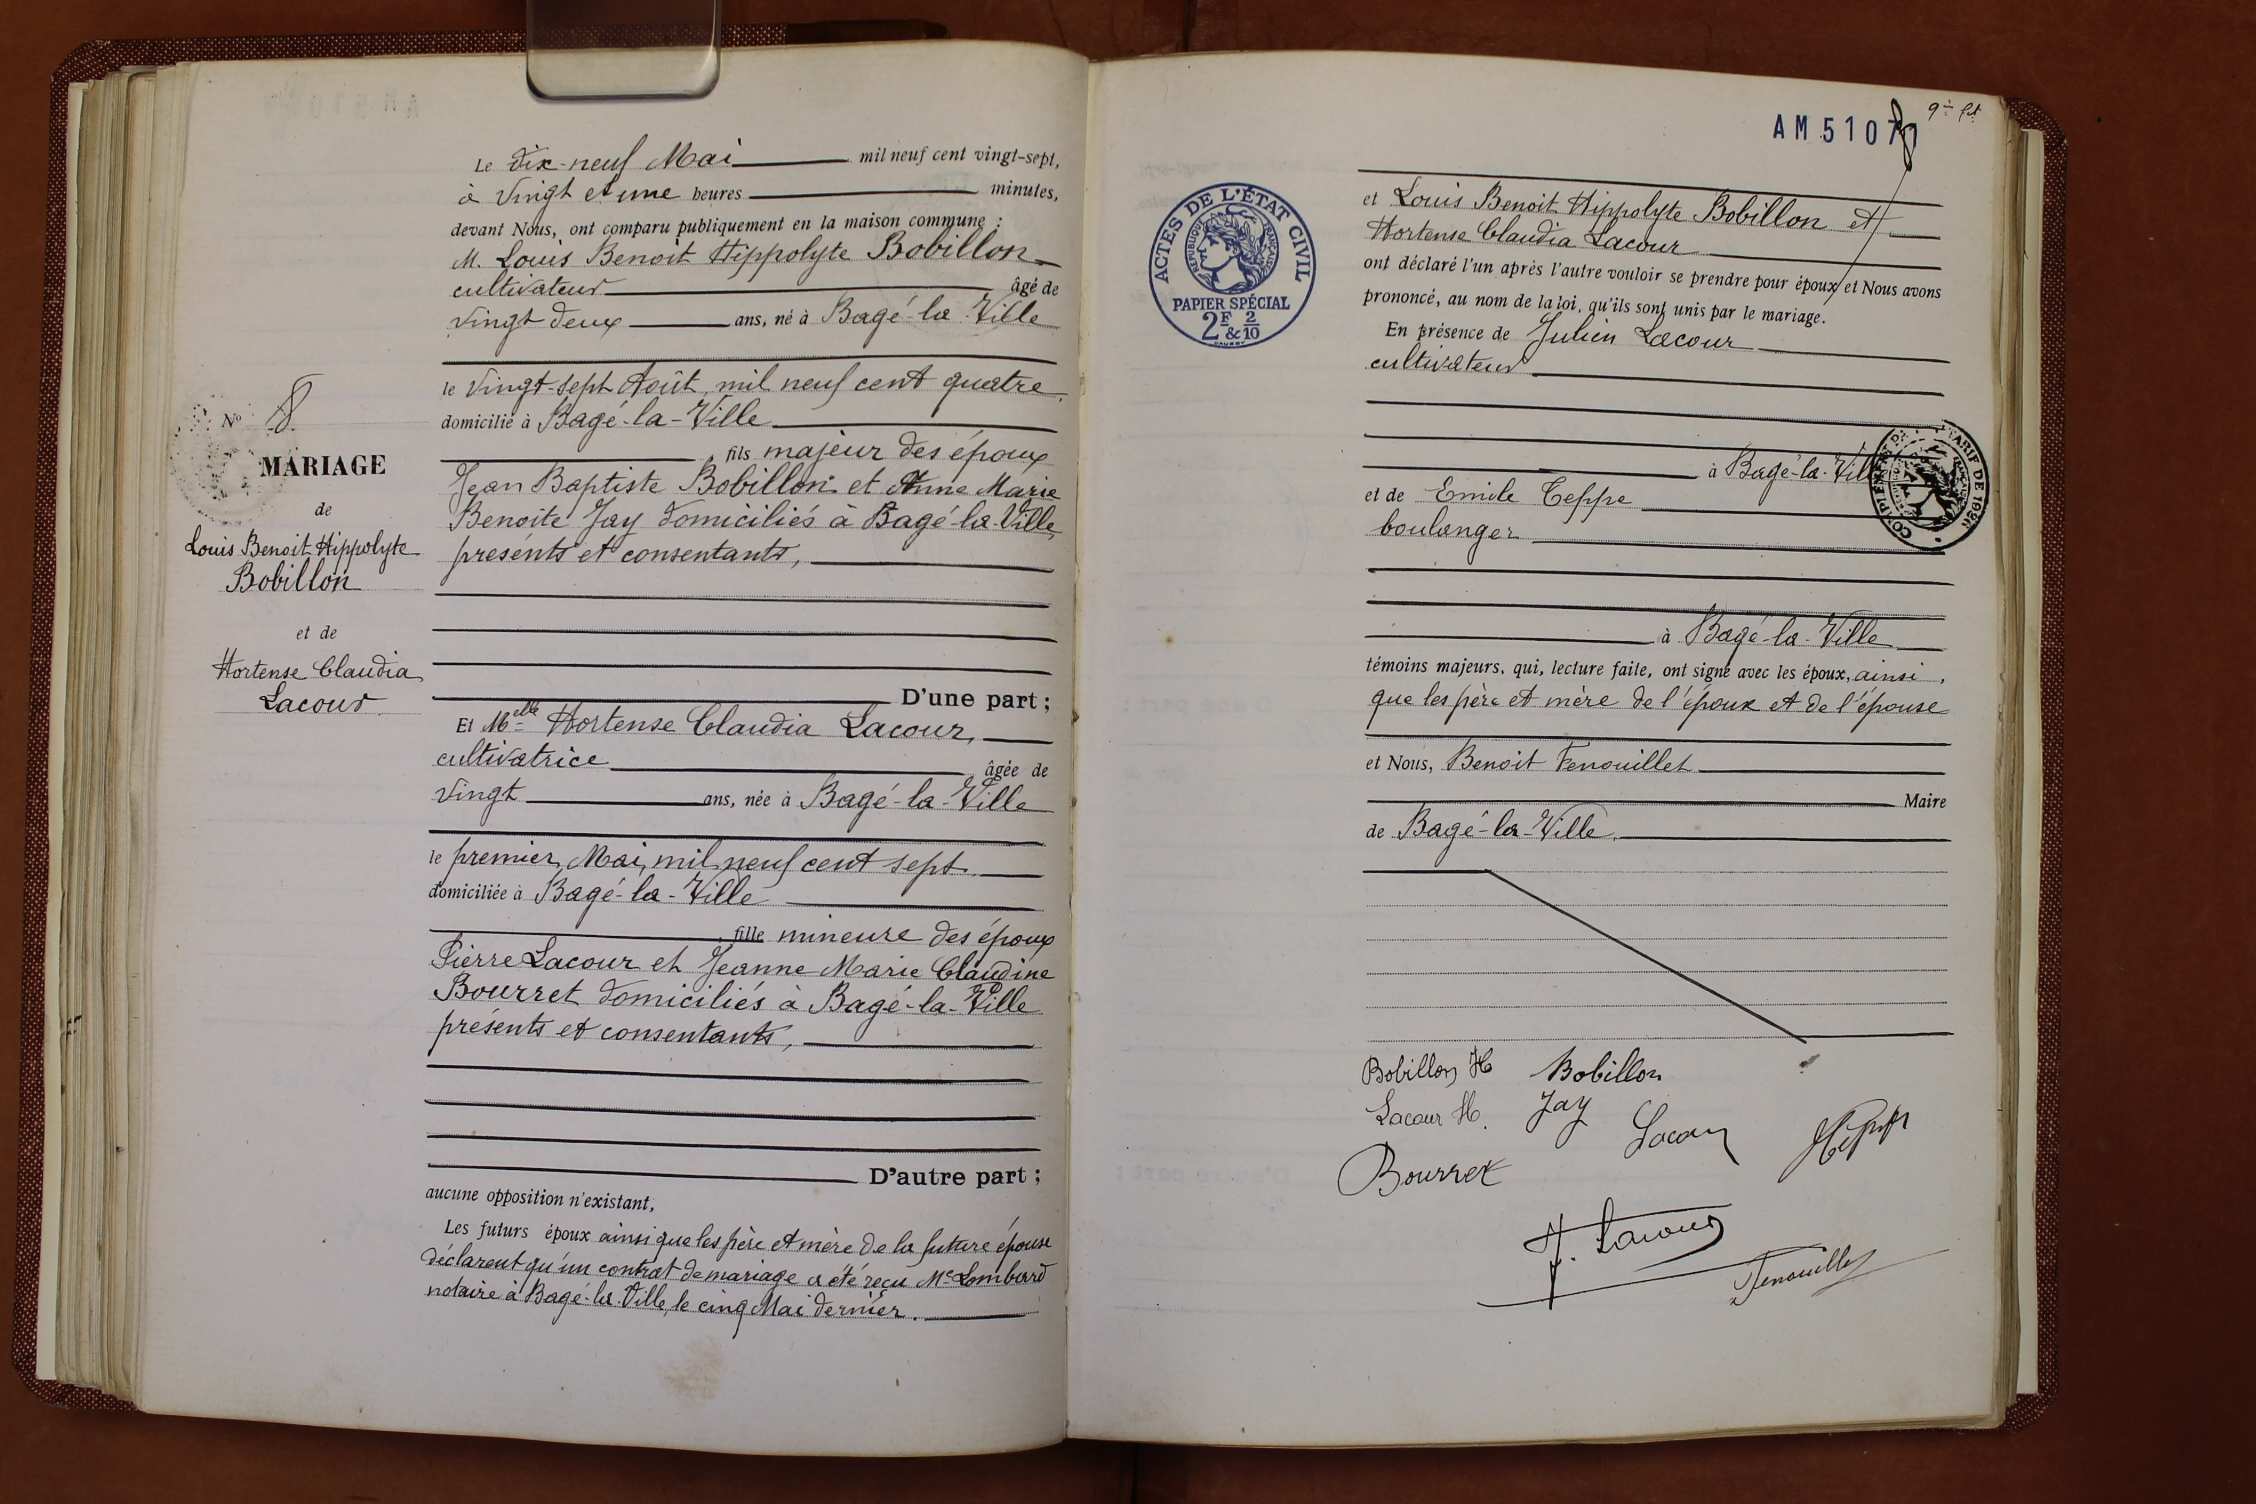 Le dix-neuf Mai mil neuf cent vingt-sept,
à vingt et une heures minutes,
devant Nous, ont comparu publiquement en la maison commune :
M. Louis Benoit Hippolyte Bobillon
cultivateur âgé de
vingt deux ans, né à Bagé-la-Ville
le vingt-sept Août, mil neuf cent quatre
domicilié à Bagé-la-Ville
fils majeur des époux
Jean Baptiste Bobillon et Anne Marie
Benoite Jay domiciliés à Bagé-la-Ville,
présents et consentants,
D'une part ;
Et Melle Hortense Claudia Lacour,
cultivatrice âgée de
vingt ans, née à Bagé-la-Ville
le premier Mai, mil neuf cent sept
domiciliée à Bagé-la-Ville
fille mineure des époux
Pierre Lacour et Jeanne Marie Claudine
Bourret domiciliés à Bagé-la-Ville
présents et consentants,
D'autre part ;
aucune opposition n'existant,
Les futurs époux ainsi que les père et mère de la future épouse
déclarent qu'un contrat de mariage a été reçu Me Lombard
notaire à Bagé-la-Ville, le cinq Mai dernier.
No 8
MARIAGE
de
Louis Benoit Hippolyte
Bobillon
et de
Hortense Claudia
Lacour
AM5107
ACTES DE L'ÉTAT CIVIL
RÉPUBLIQUE FRANÇAISE
PAPIER SPÉCIAL
2F & 2/10
et Louis Benoit Hippolyte Bobillon et
Hortense Claudia Lacour
ont déclaré l'un après l'autre vouloir se prendre pour époux et Nous avons
prononcé, au nom de la loi, qu'ils sont unis par le mariage.
En présence de Julien Lacour
cultivateur
à Bagé-la-Ville
et de Emile Teppe
boulanger
à Bagé-la-Ville
témoins majeurs, qui, lecture faite, ont signé avec les époux, ainsi
que les père et mère de l'époux et de l'épouse
et Nous, Benoit Fenouillet
Maire
de Bagé-la-Ville.
Bobillon H Bobillon
Lacour H. Jay
Lacour
Bourret
J. Lacour
Fenouillet